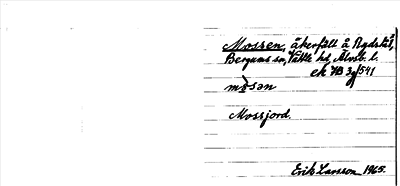 Mossen, åkerfält å Rydstå,
Bergums sn, Vättle hd, Älvsb. l.
ek HB 3g/541
mòsan
Mossjord.
Erik Larsson 1965.